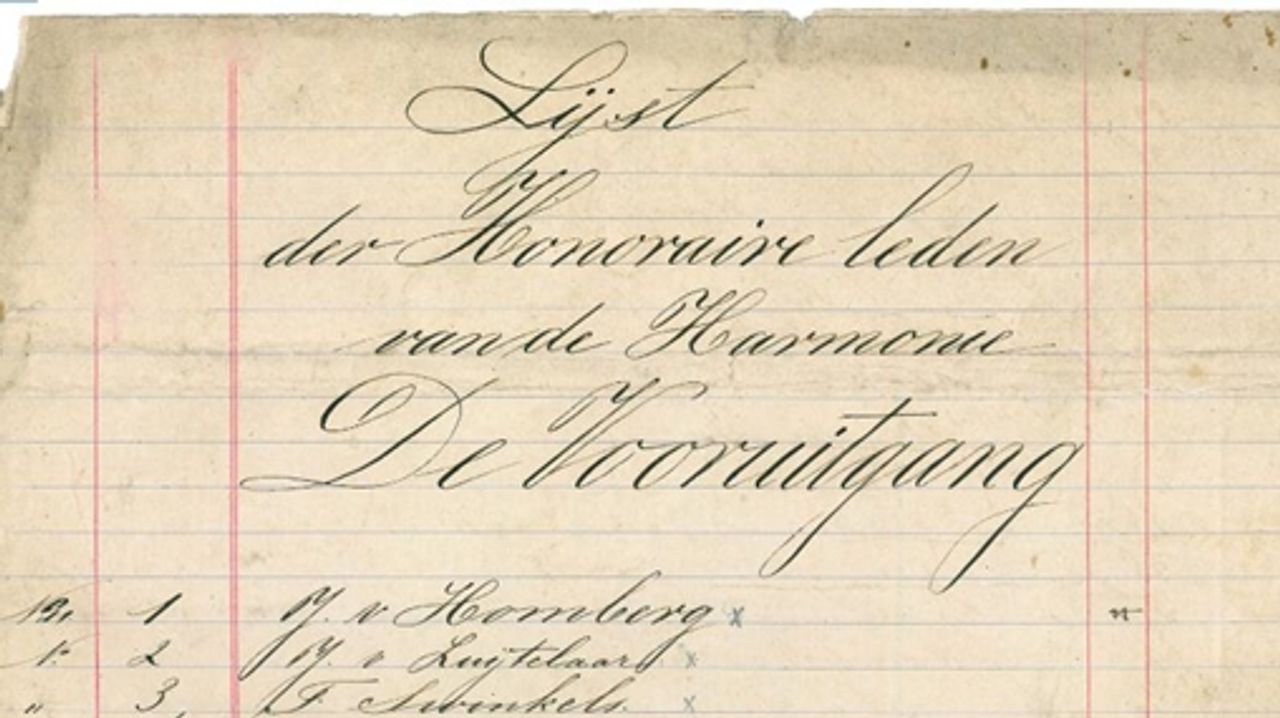 Lijst
der Honoraire leden
van de Harmonie
De Vooruitgang
No 1 J. v Homberg x "
" 2 J. v Luijtelaar x
" 3 F Swinkels. x